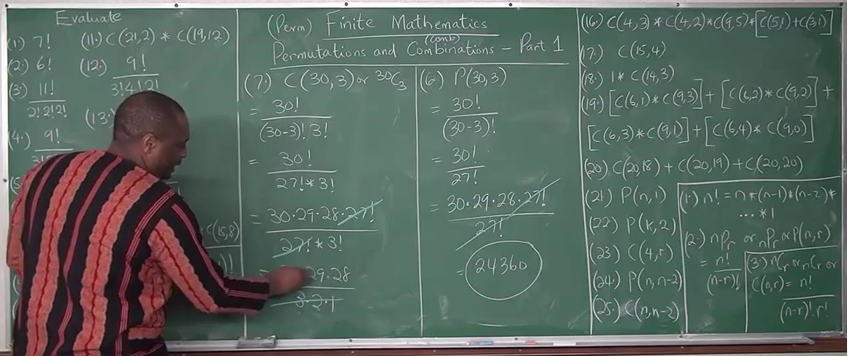 Evaluate
(1.) 7!
(2.) 6!
(3.) 11!
2!2!2!
(4.) 9!
(11.) C(21,2) * C(19,12)
(12.) 9!
3!4!2!
(13.)
* C(15,8)
(Perm) Finite Mathematics
(comb)
Permutations and Combinations - Part 1
(7.) C(30,3) or 30C3
= 30!
(30-3)!3!
= 30!
27!*3!
= 30·29·28·27!
27!*3!
29·28
3·2·1
(6.) P(30,3)
= 30!
(30-3)!
= 30!
27!
= 30·29·28·27!
27!
= 24360
(16.) C(4,3)*C(4,2)*C(9,5)*[C(5,1)+C(3,1)]
(17.) C(15,4)
(18.) 1*C(14,3)
(19.) [C(6,1)*C(9,3)] + [C(6,2)*C(9,2)] +
[C(6,3)*C(9,1)] + [C(6,4)*C(9,0)]
(20.) C(20,18) + C(20,19) + C(20,20)
(21) P(n,1)
(22) P(k,2)
(23) C(4,r)
(24) P(n,n-2)
(25.) C(n,n-2)
(1.) n! = n*(n-1)*(n-2)*
... *1
(2.) nPr or nPr or P(n,r)
= n!
(n-r)!
(3.) nCr or nCr or
C(n,r) = n!
(n-r)!r!